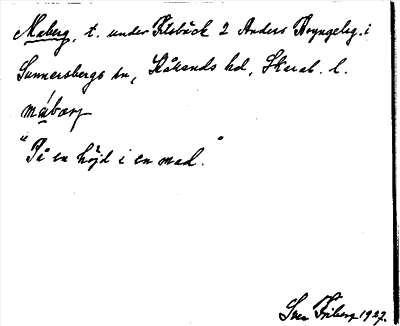 Maberg, t. under Filsbäck 2 Anders Bryngelsg. i
Sunnersbergs sn, Kållands hd, Skarab. l.
mábærj
"På en höjd i en mad."
Sven Friberg 1927.